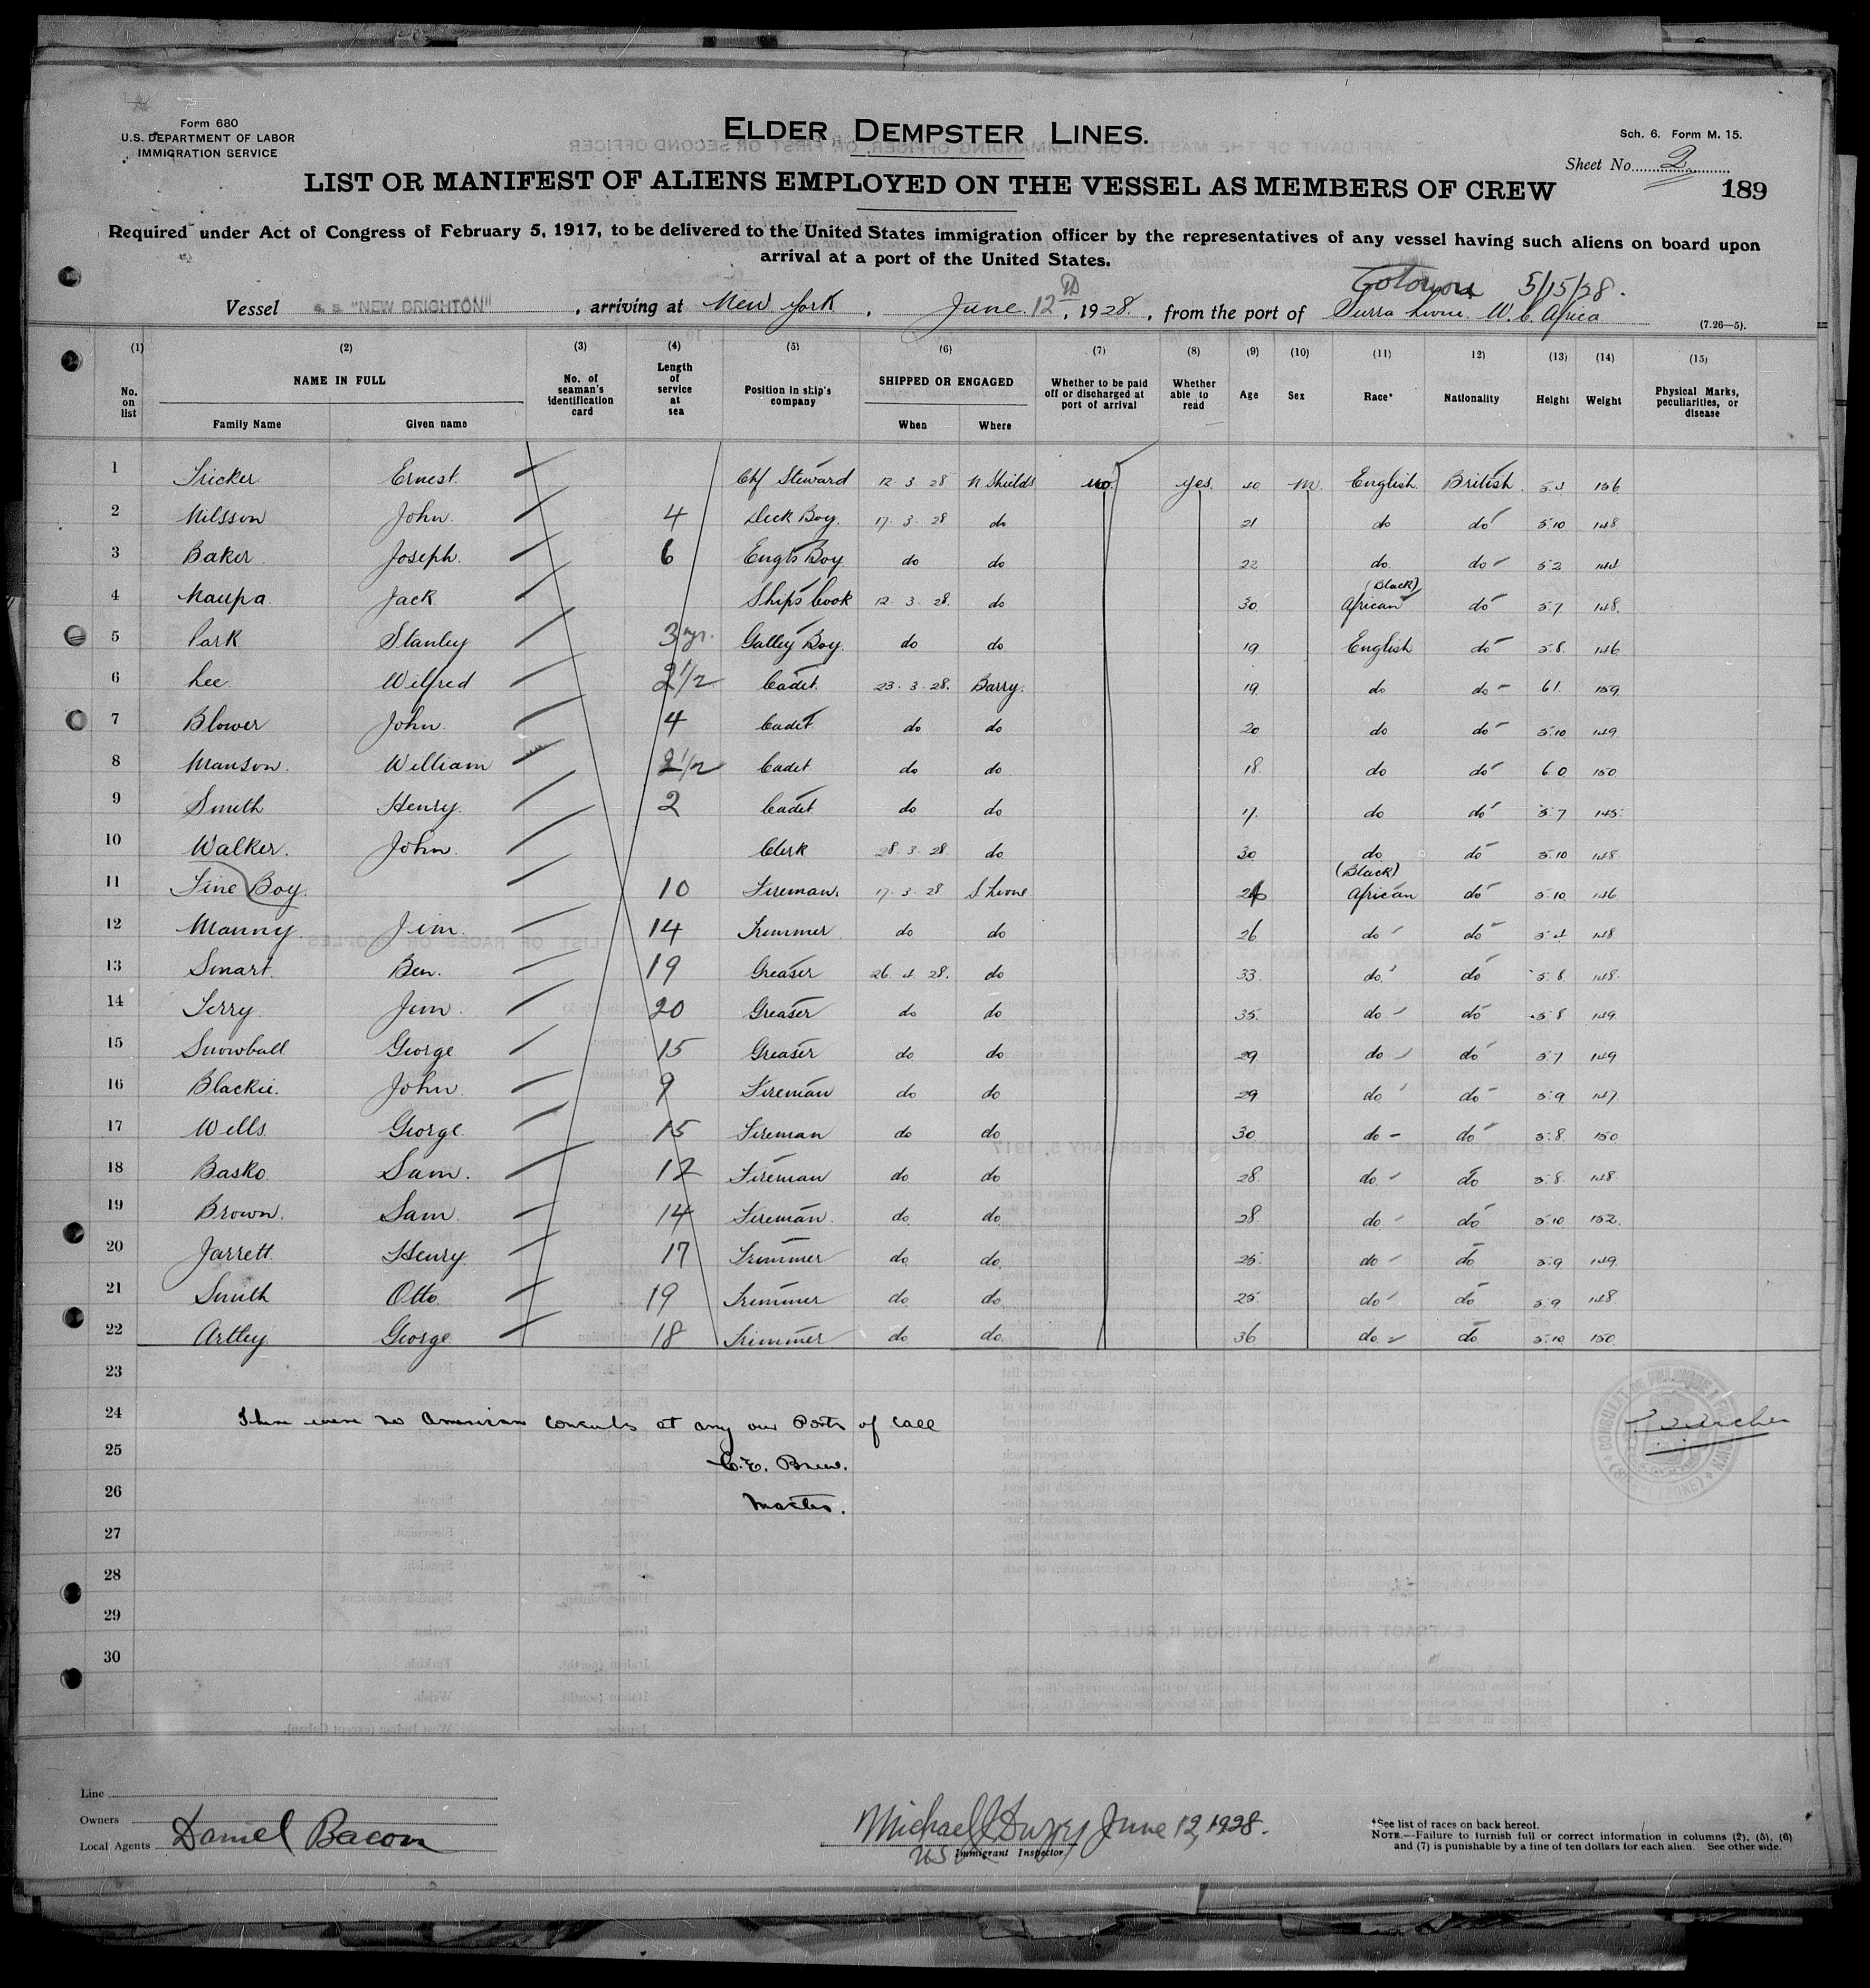 Form 680
U.S. DEPARTMENT OF LABOR
IMMIGRATION SERVICE
ELDER DEMPSTER LINES.
Sch. 6. Form M. 15.
Sheet No. 2
189
LIST OR MANIFEST OF ALIENS EMPLOYED ON THE VESSEL AS MEMBERS OF CREW
Required under Act of Congress of February 5, 1917, to be delivered to the United States immigration officer by the representatives of any vessel having such aliens on board upon
arrival at a port of the United States.
5/15/28.
Vessel s.s "NEW BRIGHTON", arriving at New York, June 12th, 1928, from the port of Sierra Leone. W. C. Africa
(7.26—5).
(1) (2) (3) (4) (5) (6) (7) (8) (9) (10) (11) 12) (13) (14) (15)
No. on list NAME IN FULL Family Name Given name No. of seaman's identification card Length of service at sea Position in ship's company SHIPPED OR ENGAGED When Where Whether to be paid off or discharged at port of arrival Whether able to read Age Sex Race* Nationality Height Weight Physical Marks, peculiarities, or disease
1 Tricker Ernest. Chf Steward 12 3 28 N Shields no. yes. 40 m. English British 5.4 156
2 Nilsson John. 4 Deck Boy. 17. 3. 28 do 21 do do 5.10 148
3 Baker Joseph. 6 Eng's Boy do do 22 do. do 5.2 144
4 Maupa Jack Ships Cook 12. 3. 28. do 30 (Black) African do 5.7 148
5 Park Stanley 3 yr. Galley Boy do do 19 English do 5.8 146
6 Lee Wilfred 2 1/2 Cadet. 23. 3. 28. Barry. 19 do do 6 1. 159
7 Blower John. 4 Cadet do do 20 do do 5.10 149
8 Manson. William 2 1/2 Cadet do do 18. do do 6 0 150
9 Smith Henry. 2 Cadet. do do do do 5.7 145
10 Walker. John. Clerk 28. 3. 28. do 30 do do 5.10 148
11 Fine Boy. 10 Fireman. 17. 3. 28 S Leone (Black) African do 5.10 146
12 Manny Jim. 14 Trimmer do do 26 do do 5.4 148
13 Smart. Ben. 19 Greaser 26. 4. 28. do 33. do do 5.8 148
14 Terry. Jim. 20 Greaser do do 35. do do 5.8 149
15 Snowball George 15 Greaser do do 29 do do 5.7 149
16 Blackie. John. 9 Fireman do do 29 do do 5.9 147
17 Wells. George. 15 Fireman do do 30 do do 5.8 150
18 Basko. Sam. 12 Fireman do do 28. do do 5.8 148
19 Brown. Sam. 14 Fireman. do do 28. do do 5.10 152.
20 Jarrett. Henry. 17 Trimmer do do. 25. do do 5.9 149
21 Smith Otto. 19 Trimmer do do 25. do do 5.9 148
22 Artley. George. 18 Trimmer do do. 36 do do 5.10 150
23
24 There were no American Consuls at any our Ports of call
25 C.E. Brew.
26 Master.
27
28
29
30
Line
Owners
Local Agents Daniel Bacon
June 12, 1928.
Immigrant Inspector
*See list of races on back hereof.
NOTE.—Failure to furnish full or correct information in columns (2), (5), (6)
and (7) is punishable by a fine of ten dollars for each alien. See other side.